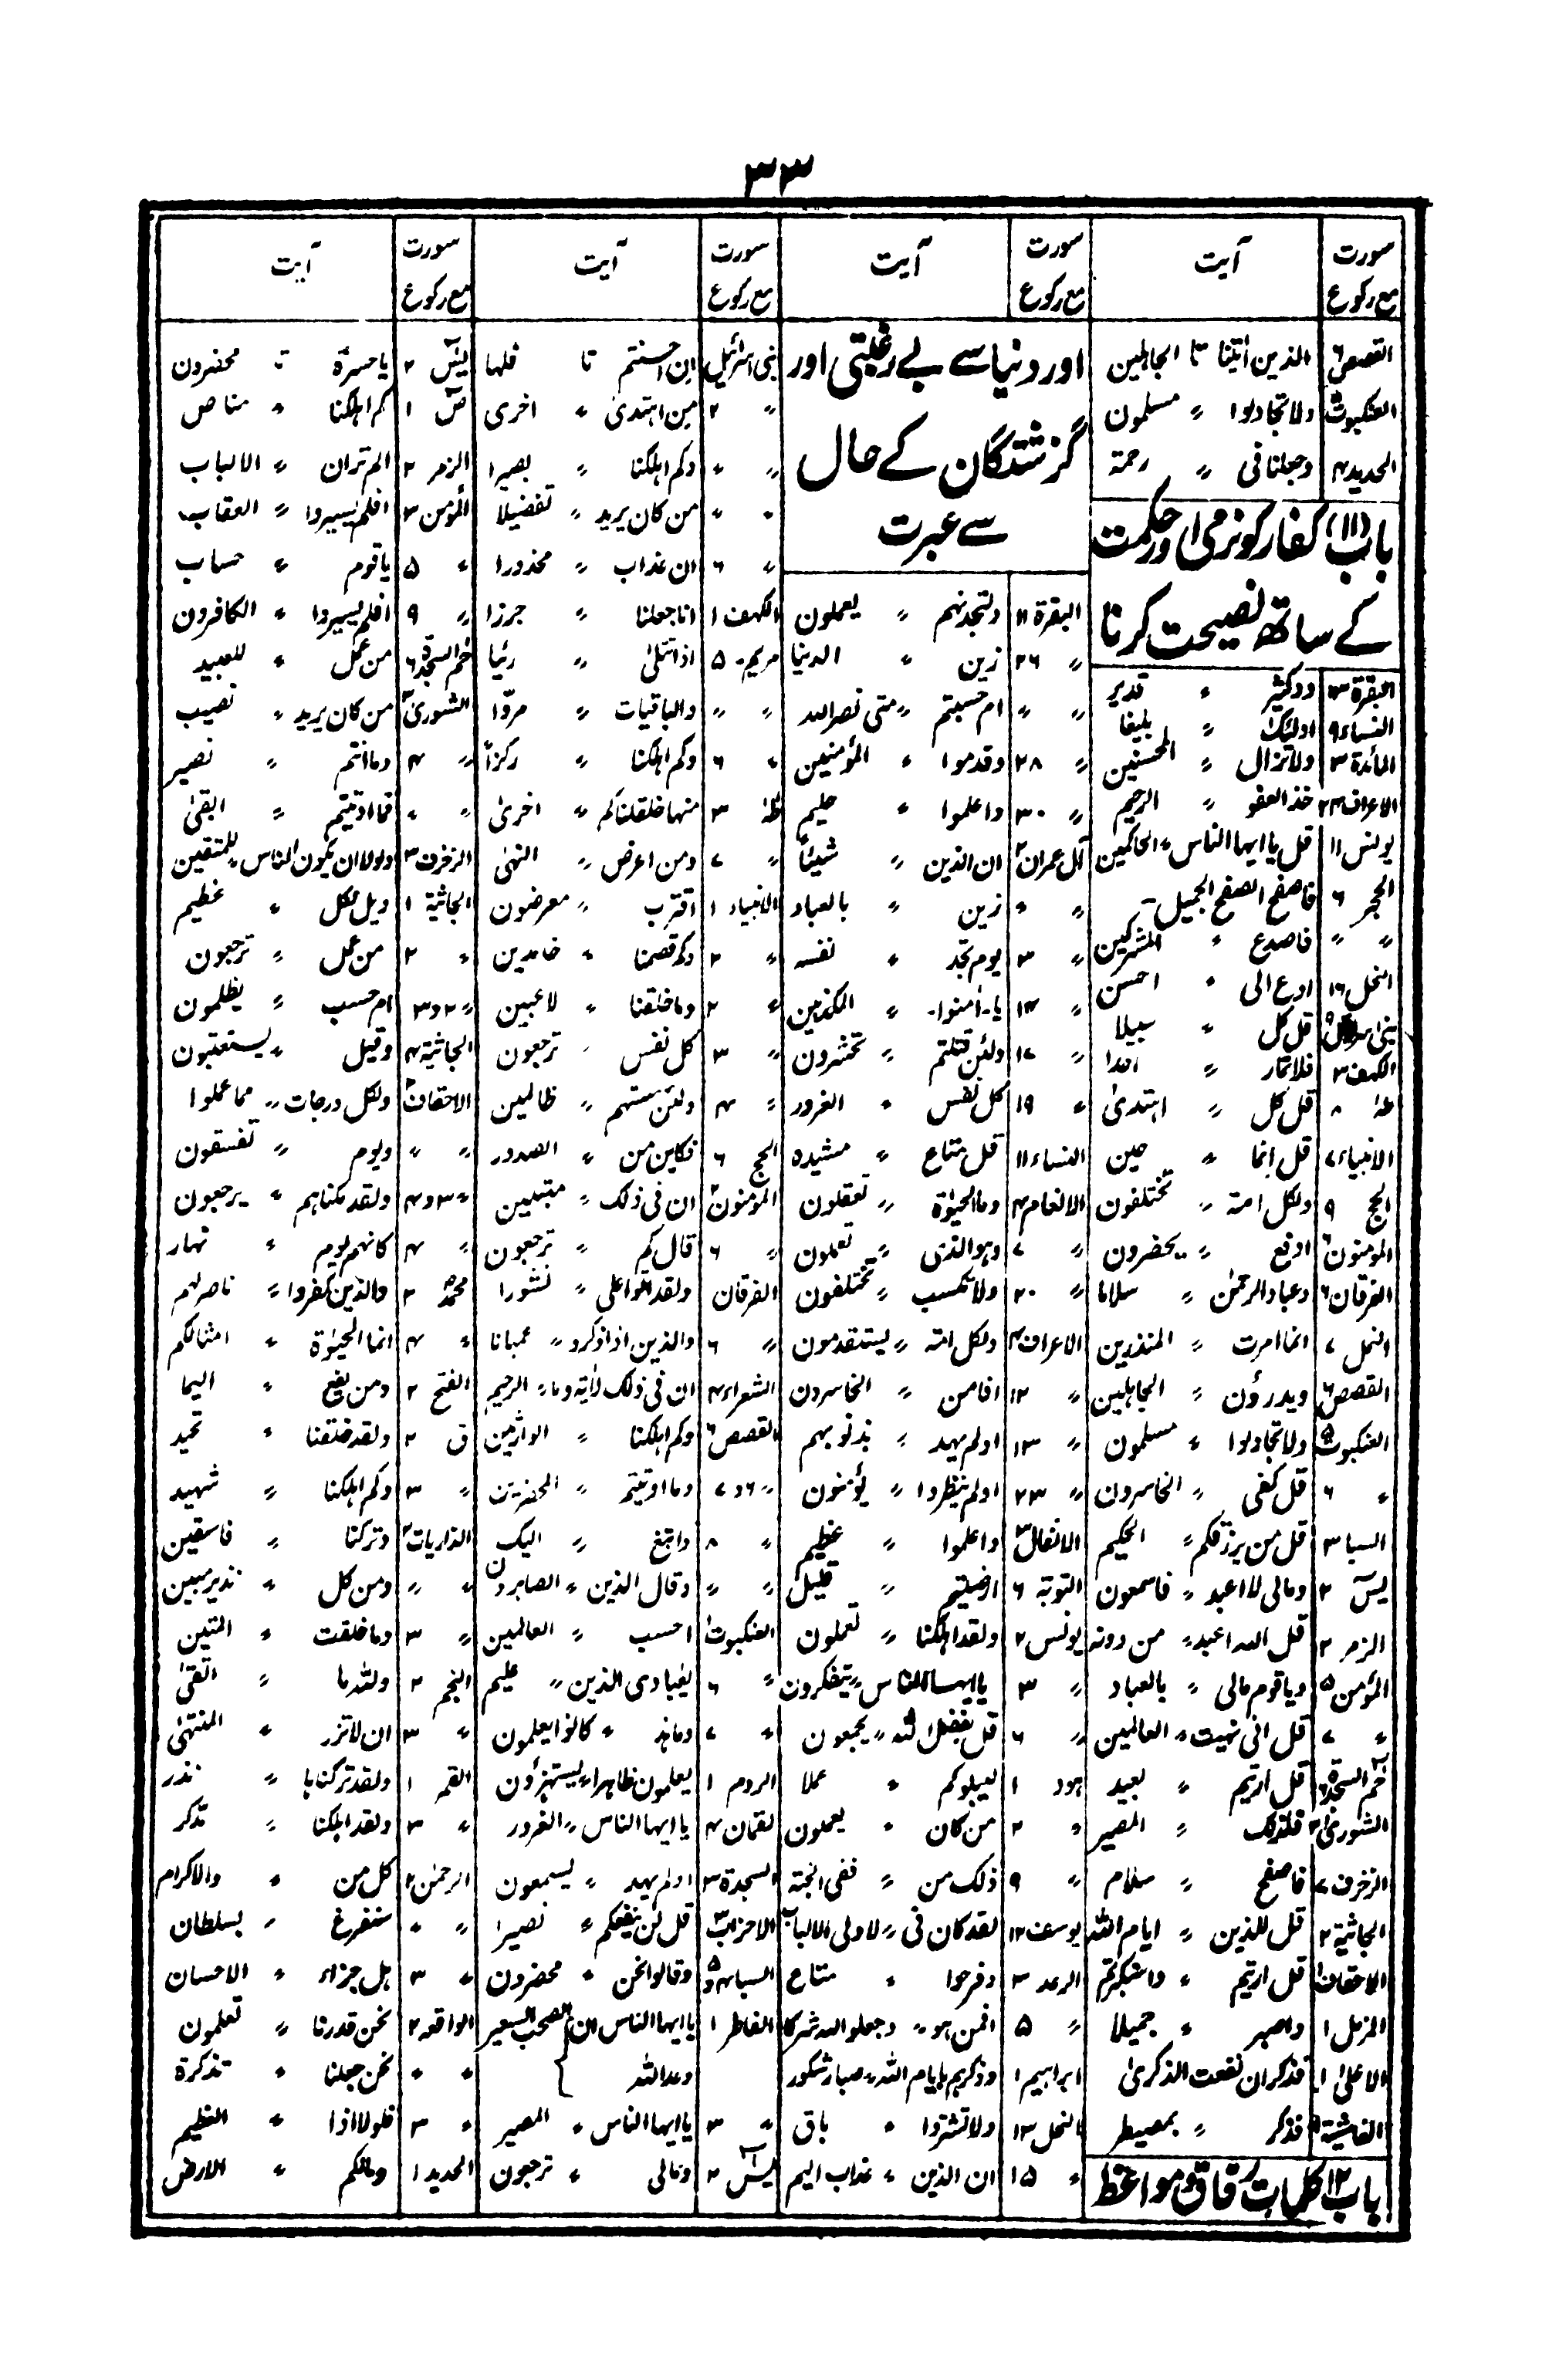 ۳۳
سورت مع رکوع | آیت
القصص ۶ | الذین اٰتینا تا الجاہلین
العنکبوت ۵ | ولا تجادلوا 〃 مسلمون
الحدید ۴ | وجعلنا فی 〃 رحمۃ
باب (۱۱) کفار کو نرمی اور حکمت
کے ساتھ نصیحت کرنا
البقرۃ ۱۳ | ود کثیر 〃 قدیر
النساء ۹ | اولٰئک 〃 بلیغا
المائدۃ ۳ | ولا تزال 〃 المحسنین
الاعراف ۲۴ | خذ العفو 〃 الرحیم
یونس ۱۱ | قل یا ایہا الناس 〃 الحاکمین
الحجر ۶ | فاصفح الصفح الجمیل۔
〃 〃 | فاصدع 〃 المشرکین
النحل ۱۶ | ادع الی 〃 احسن
بنی اسرائیل ۹ | قل کل 〃 سبیلا
الکہف ۳ | فلا تمار 〃 احدا
طہٰ ۸ | قل کل 〃 اہتدیٰ
الانبیاء ۷ | قل انما 〃 حین
الحج ۹ | ولکل امۃ 〃 تختلفون
المؤمنون ۶ | ادفع 〃 یحضرون
الفرقان ۶ | وعباد الرحمٰن 〃 سلاما
النمل ۷ | انما امرت 〃 المنذرین
القصص ۶ | ویدرؤن 〃 الجاہلین
العنکبوت ۵ | ولا تجادلوا 〃 مسلمون
〃 ۶ | قل کفی 〃 الخاسرون
السبا ۳ | قل من یرزقکم 〃 الحکیم
یٰسٓ ۲ | ومالی لا اعبد 〃 فاسمعون
الزمر ۲ | قل اللہ اعبد 〃 من دونہ
المؤمن ۵ | ویا قوم مالی 〃 بالعباد
〃 ۷ | قل انی نہیت 〃 العالمین
حٰم السجدۃ ۶ | قل ارئیتم 〃 بعید
الشوریٰ ۲ | فلذلک 〃 المصیر
الزخرف ۷ | فاصفح 〃 سلام
الجاثیۃ ۲ | قل للذین 〃 ایام اللہ
الاحقاف ۱ | قل ارئیتم 〃 واستکبرتم
المزمل ۱ | واصبر 〃 جمیلا
الاعلیٰ ۱ | فذکر ان نفعت الذکریٰ
الغاشیۃ ۱ | فذکر 〃 بمصیطر
باب ۱۲ کلمات رقاق و مواعظ
سورت مع رکوع | آیت
اور دنیا سے بے رغبتی اور
گزشتگان کے حال
سے عبرت
البقرۃ ۱۱ | ولتجدنہم 〃 یعملون
〃 ۲۶ | زین 〃 الدنیا
〃 〃 | ام حسبتم 〃 متی نصر اللہ
〃 ۲۸ | وقدموا 〃 المؤمنین
〃 ۳۰ | واعلموا 〃 حلیم
آل عمران ۲ | ان الذین 〃 شیئاً
〃 〃 | زین 〃 بالعباد
〃 ۳ | یوم تجد 〃 نفسہ
〃 ۱۴ | یا۔اٰمنوا۔ 〃 المکذبین
〃 ۱۷ | ولئن قتلتم 〃 تحشرون
〃 ۱۹ | کل نفس 〃 الغرور
النساء ۱۱ | قل متاع 〃 مشیدہ
الانعام ۴ | وما الحیٰوۃ 〃 تعقلون
〃 ۷ | وہو الذی 〃 تعملون
〃 ۲۰ | ولا تکسب 〃 تختلفون
الاعراف ۴ | ولکل امۃ 〃 لیستقدمون
〃 ۱۲ | افامن 〃 الخاسرون
〃 ۱۳ | اولم یہد 〃 بذنوبہم
〃 ۲۳ | اولم ینظروا 〃 یؤمنون
الانفال ۳ | واعلموا 〃 عظیم
التوبۃ ۶ | ارضیتم 〃 قلیل
یونس ۲ | ولقد اہلکنا 〃 تعملون
〃 ۳ | یا ایہا الناس 〃 یتفکرون
〃 ۶ | قل بفضل اللہ 〃 یجمعون
ہود ۱ | لیبلوکم 〃 عملا
〃 ۲ | من کان 〃 یعملون
〃 ۹ | ذلک من 〃 ففی الجنۃ
یوسف ۱۲ | لقد کان فی 〃 لاولی الالباب
الرعد ۳ | وفرحوا 〃 متاع
〃 ۵ | افمن ہو 〃 وجعلوا للہ شرکا
ابراہیم ۱ | وذکرہم بایام اللہ 〃 صبار شکور
النحل ۱۳ | ولا تشتروا 〃 باق
〃 ۱۵ | ان الذین 〃 عذاب الیم
سورت مع رکوع | آیت
بنی اسرائیل | ان احسنتم تا فلہا
〃 ۲ | من اہتدیٰ 〃 اخری
〃 〃 | وکم اہلکنا 〃 بصیرا
〃 〃 | من کان یرید 〃 تفضیلا
〃 ۶ | ان عذاب 〃 محذورا
الکہف ۱ | انا جعلنا 〃 جرزا
مریم۔ ۵ | اذا تتلیٰ 〃 رئیا
〃 〃 | والباقیات 〃 مردّا
〃 ۶ | وکم اہلکنا 〃 رکزاً
طہٰ ۳ | منہا خلقناکم 〃 اخریٰ
〃 ۷ | ومن اعرض 〃 النہیٰ
الانبیاء ۱ | اقترب 〃 معرضون
〃 ۲ | وکم قصمنا 〃 خامدین
〃 ۲ | وما خلقنا 〃 لاعبین
〃 ۳ | کل نفس 〃 ترجعون
〃 ۴ | ولئن مستہم 〃 ظالمین
الحج ۶ | فکاین من 〃 الصدور
المؤمنون ۲ | ان فی ذلک 〃 مبتلین
〃 ۶ | قال کم 〃 ترجعون
الفرقان | ولقد اتوا علی 〃 نشورا
〃 ۶ | والذین اذا ذکرو 〃 عمیانا
الشعراء ۴ | ان فی ذلک لاٰیۃ وما 〃 الرحیم
القصص ۶ | وکم اہلکنا 〃 الوارثین
〃 ۶ و ۷ | وما اوتیتم 〃 المحضرین
〃 ۸ | وابتغ 〃 الیک
〃 〃 | وقال الذین 〃 الصابرون
العنکبوت ۱ | احسب 〃 العالمین
〃 ۶ | یٰعبادی الذین 〃 علیم
〃 ۷ | وما ہذہ 〃 کانوا یعلمون
الروم ۱ | یعلمون ظاہرا 〃 یستہزؤن
لقمان ۴ | یا ایہا الناس 〃 الغرور
السجدۃ ۳ | اولم یہد 〃 یسمعون
الاحزاب ۲ | قل لن ینفعکم 〃 نصیرا
السبا ۴ و ۵ | وقالوا نحن 〃 محضرون
الفاطر ۱ | یا ایہا الناس ان وعد اللہ } اصحٰب السعیر
〃 ۳ | یا ایہا الناس 〃 المصیر
یٰسٓ ۲ | ومالی 〃 ترجعون
سورت مع رکوع | آیت
یٰسٓ ۲ | یا حسرۃ تا محضرون
صٓ ۱ | کم اہلکنا 〃 مناص
الزمر ۲ | الم تر ان 〃 الالباب
المؤمن ۳ | افلم یسیروا 〃 العقاب
〃 ۵ | یا قوم 〃 حساب
〃 ۹ | افلم یسیروا 〃 الکافرون
حٰم السجدۃ ۶ | من عمل 〃 للعبید
الشوریٰ ۳ | من کان یرید 〃 نصیب
〃 ۴ | وما انتم 〃 نصیر
〃 〃 | فما اوتیتم 〃 ابقیٰ
الزخرف ۳ | ولولا ان یکون الناس 〃 للمتقین
الجاثیۃ ۱ | ویل لکل 〃 عظیم
〃 ۲ | من عمل 〃 ترجعون
〃 ۲ و ۳ | ام حسب 〃 یظلمون
الجاثیۃ ۴ | وقیل 〃 یستعتبون
الاحقاف ۲ | ولکل درجات 〃 مما عملوا
〃 〃 | ویوم 〃 تفسقون
〃 ۳ و ۴ | ولقد مکناہم 〃 یرجعون
〃 ۴ | کانہم یوم 〃 نہار
محمدؐ ۲ | والذین کفروا 〃 ناصر لہم
〃 ۴ | انما الحیٰوۃ 〃 امثالکم
الفتح ۲ | ومن یطع 〃 الیما
ق ۲ | ولقد خلقنا 〃 تحید
〃 ۳ | وکم اہلکنا 〃 شہید
الذاریات ۲ | وترکنا 〃 فاسقین
〃 〃 | ومن کل 〃 نذیر مبین
〃 ۳ | وما خلقت 〃 المتین
النجم ۲ | وللہ ما 〃 اتقیٰ
〃 ۳ | ان لا تزر 〃 المنتہیٰ
القمر ۱ | ولقد ترکناہا 〃 نذر
〃 ۳ | ولقد اہلکنا 〃 مدکر
الرحمٰن ۲ | کل من 〃 والاکرام
〃 〃 | سنفرغ 〃 بسلطان
〃 ۳ | ہل جزاء 〃 الاحسان
الواقعہ ۲ | نحن قدرنا 〃 تعلمون
〃 〃 | نحن جعلنا 〃 تذکرۃ
〃 ۳ | فلولا اذا 〃 العظیم
الحدید ۱ | ومالکم 〃 الارض